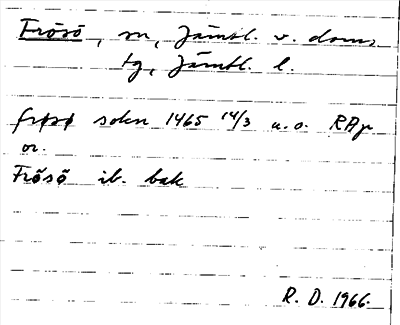 Frösö, sn, Jämtl. v. doms.
tg, Jämtl. l.
frøsø sokn 1465 14/3 u.o. RAp
or.
Frőső ib. bak
R. D. 1966.